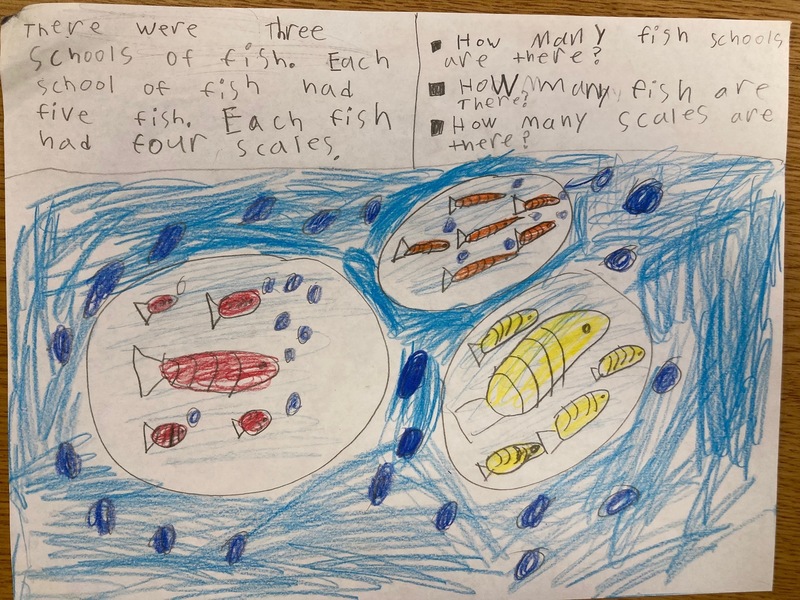 There were three
schools of fish. Each
school of fish had
five fish. Each fish
had four scales.
How many fish schools
are there?
How many fish are
There?
How many scales are
there?